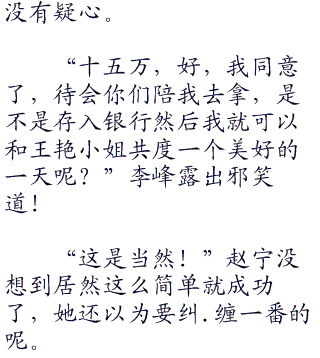 没有疑心。
“十五万，好，我同意
了，待会你们陪我去拿，是
不是存入银行然后我就可以
和王艳小姐共度一个美好的
一天呢？”李峰露出邪笑
道！
“这是当然！”赵宁没
想到居然这么简单就成功
了，她还以为要纠.缠一番的
呢。